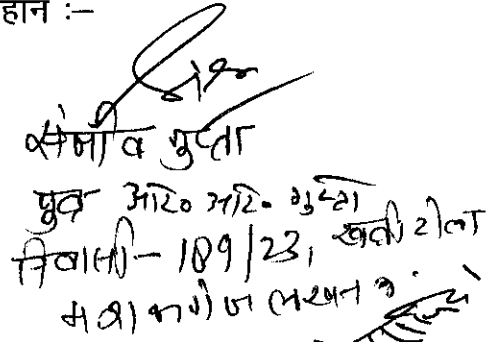 हान :–
संजीव गुप्ता
पुत्र आर० आर० गुप्ता
निवासी – 109/23, खत्री टोला
मशकगंज लखनऊ.